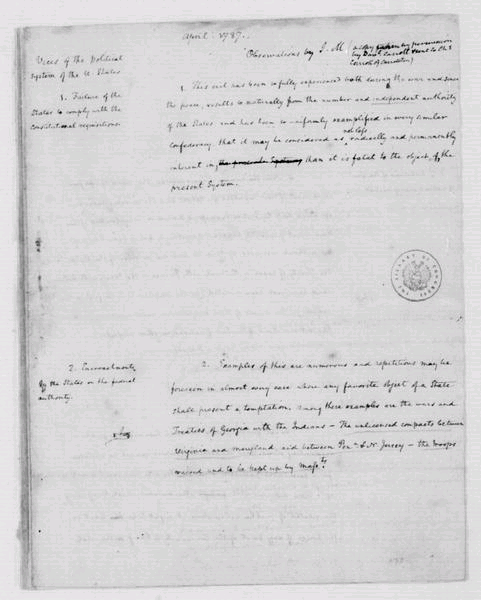 April. 1787.
Vices of the Political
System of the U. States
Observations by J. M. (a copy taken by permission
by Danl Carroll & sent to Chs
Carroll of Carrollton)
1. Failure of the
States to comply with the
constitutional requisitions.
1. This evil has been so fully experienced both during the war and since
the peace, results so naturally from the number and independent authority
of the States and has been so uniformly examplified in every similar
confederacy, that it may be considered as not less radically and permanently
inherent in, than it is fatal to the object of, the
present System.
LIBRARY OF CONGRESS
2. Encroachments
by the States on the federal
authority.
2. Examples of this are numerous and repetitions may be
foreseen in almost every case where any favorite object of a State
shall present a temptation. Among these examples are the wars and
Treaties of Georgia with the Indians — The unlicensed compacts between
Virginia and Maryland, and between Pena & N. Jersey — the troops
raised and to be kept up by Massts.